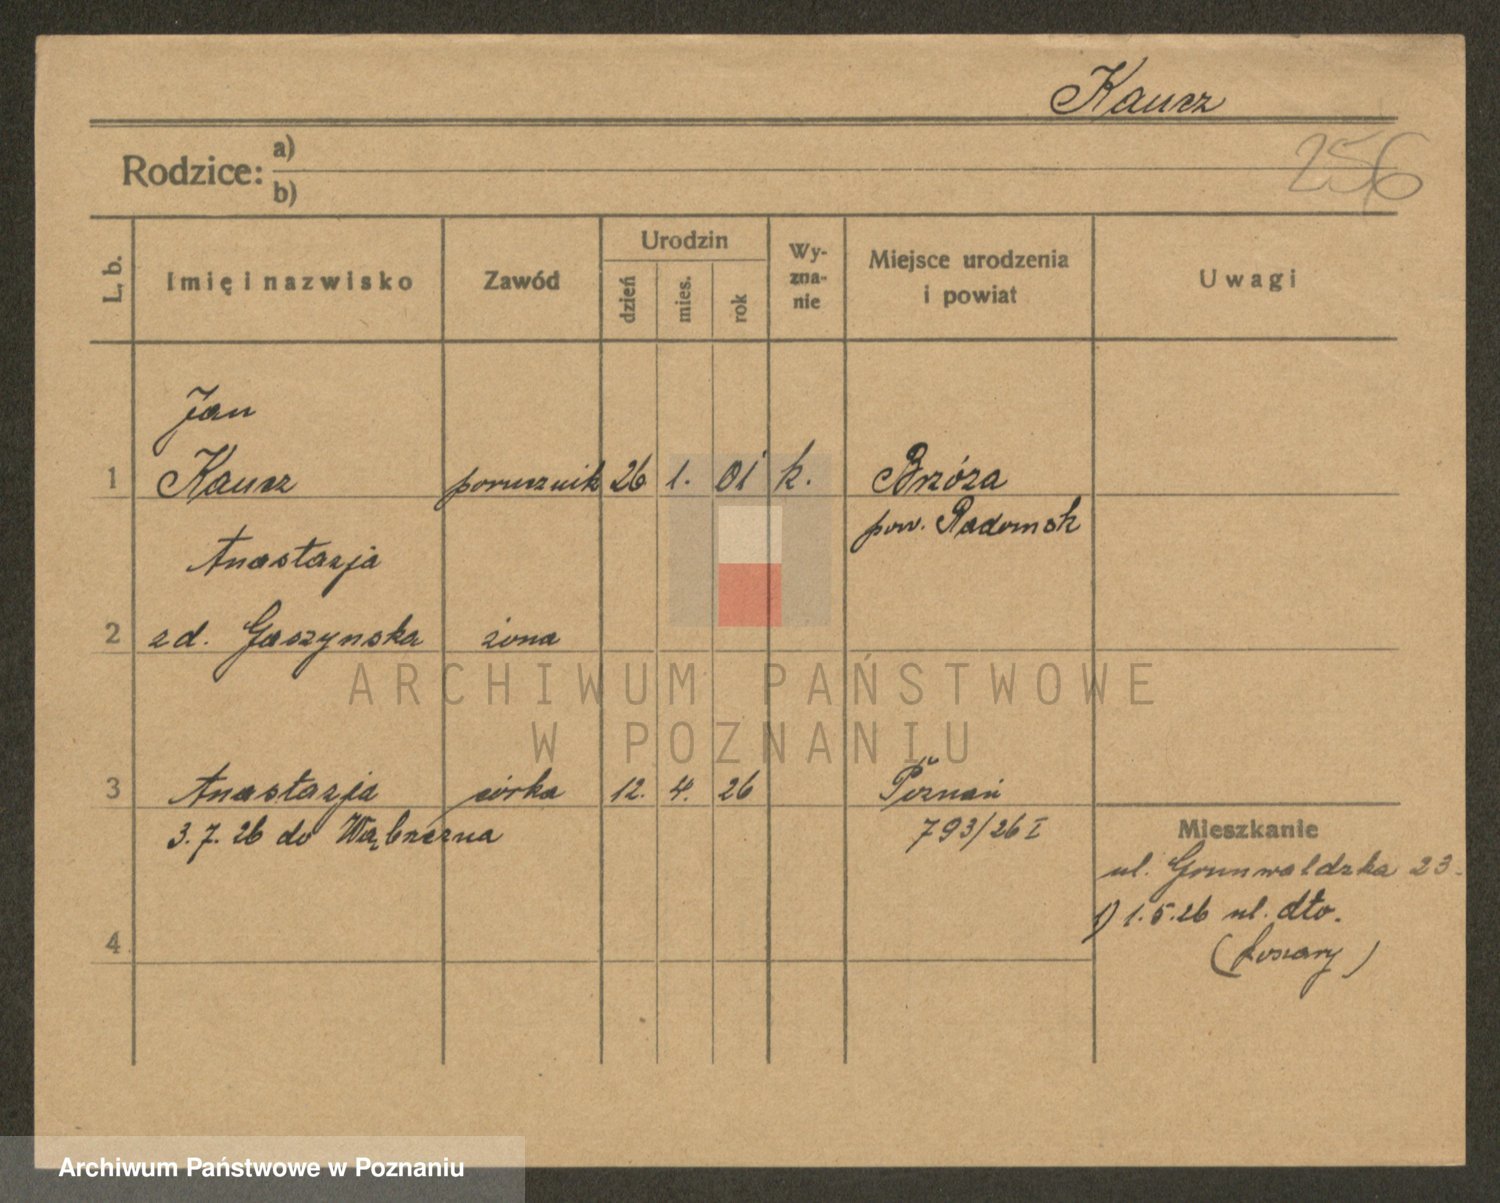 Kausz
256
Rodzice: a)
b)
L. b.
Imię i nazwisko
Zawód
Urodzin
dzień
mies.
rok
Wy-
zna-
nie
Miejsce urodzenia
i powiat
Uwagi
Jan
1 Kausz porucznik 26 1. 01 k. Brzóza
pow. Radomsk
Anastazja
2 zd. Gaszynska żona
3 Anastazja córka 12. 4. 26 Poznań
3. 7. 26 do Wąbrzezna 793/26 I
4
Mieszkanie
ul. Grunwaldzka 23.
1) 1.5.26 ul. dto.
(koszary)
ARCHIWUM PAŃSTWOWE
W POZNANIU
Archiwum Państwowe w Poznaniu